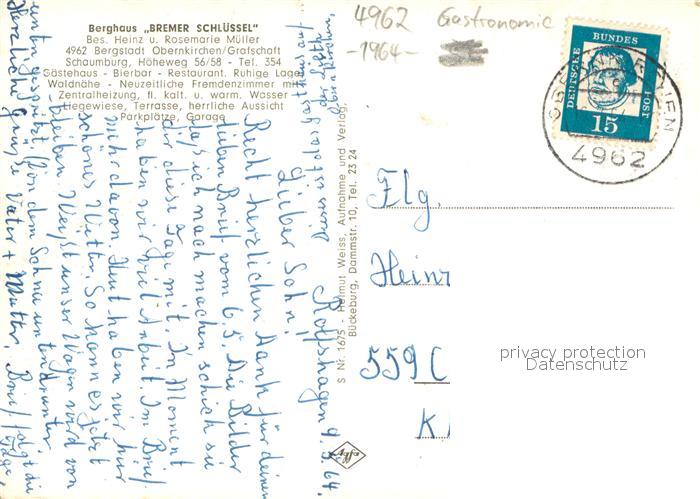 Berghaus „BREMER SCHLÜSSEL"
Bes. Heinz u. Rosemarie Müller
4962 Bergstadt Obernkirchen/Grafschaft
Schaumburg, Höheweg 56/58 - Tel. 354
Gästehaus - Bierbar - Restaurant. Ruhige Lage
Waldnähe - Neuzeitliche Fremdenzimmer mit
Zentralheizung, fl. kalt. u. warm. Wasser
Liegewiese, Terrasse, herrliche Aussicht
Parkplätze, Garage
4962 Gastronomie
-1964-
DEUTSCHE BUNDES POST
15
4962
Rolfshagen 9.5.64.
Lieber Sohn!
Recht herzlichen Dank für deinen
lieben Brief vom 6.5. Die Bilder
daß ich nach machen schick sie
dir diese Tage mit. Im Moment
haben wir viel Arbeit. Im Brief
mehr davon. Heut haben wir hier
schönes Wetter. So kann es jetzt
bleiben. Weißt unser Wagen wird von
unten gespritzt. Von dem Schnee unten drunter
Herzliche Grüße Vater + Mutter. Brief folgt die
Tage.
Dieses ist das Gasthaus auf
der
S Nr. 1675 - Helmut Weiss, Aufnahme und Verlag,
Bückeburg, Dammstr. 10, Tel. 23 24
Agfa
Flg.
Heinr
559 C
K
privacy protection
Datenschutz